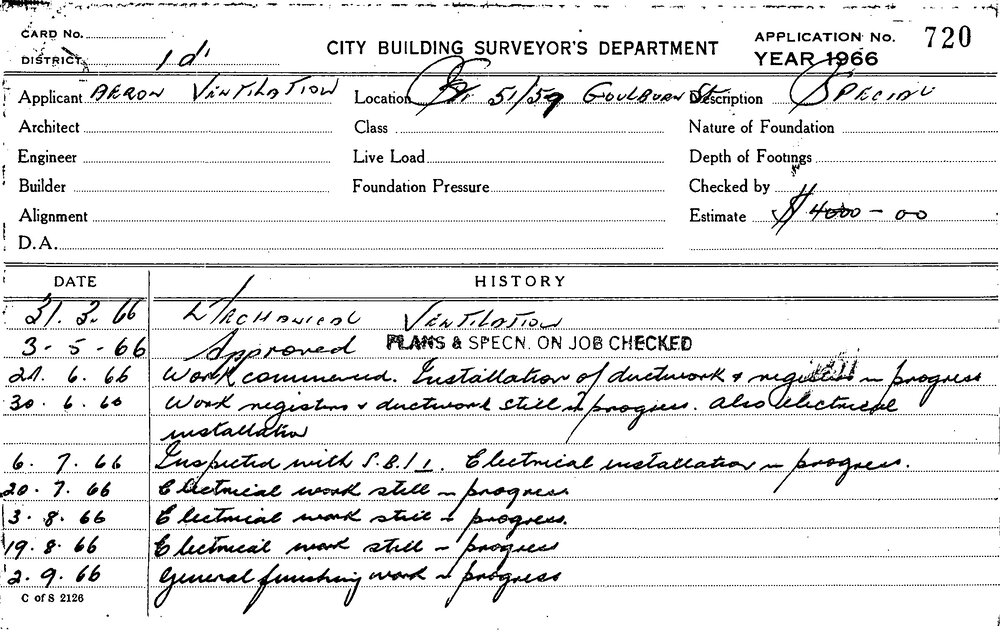 CARD No.
CITY BUILDING SURVEYOR'S DEPARTMENT
APPLICATION No. 720
DISTRICT 1d'
YEAR 1966
Applicant AERON VENTILATION Location 51/59 GOULBURN St. Description SPECIAL
Architect Class Nature of Foundation
Engineer Live Load Depth of Footings
Builder Foundation Pressure Checked by
Alignment Estimate $ 4000 - 00
D.A.
DATE HISTORY
31. 3. 66 MECHANICAL VENTILATION
3 - 5 - 66 Approved PLANS & SPECN. ON JOB CHECKED
21. 6. 66 Work commenced. Installation of ductwork & registers in progress
30. 6. 60 Work registers & ductwork still in progress. Also electrical
installation
6. 7. 66 Inspected with S.B.I. Electrical installation in progress.
20. 7. 66 Electrical work still in progress
3. 8. 66 Electrical work still in progress.
19. 8. 66 Electrical work still in progress
2. 9. 66 General finishing work in progress
C of S 2126